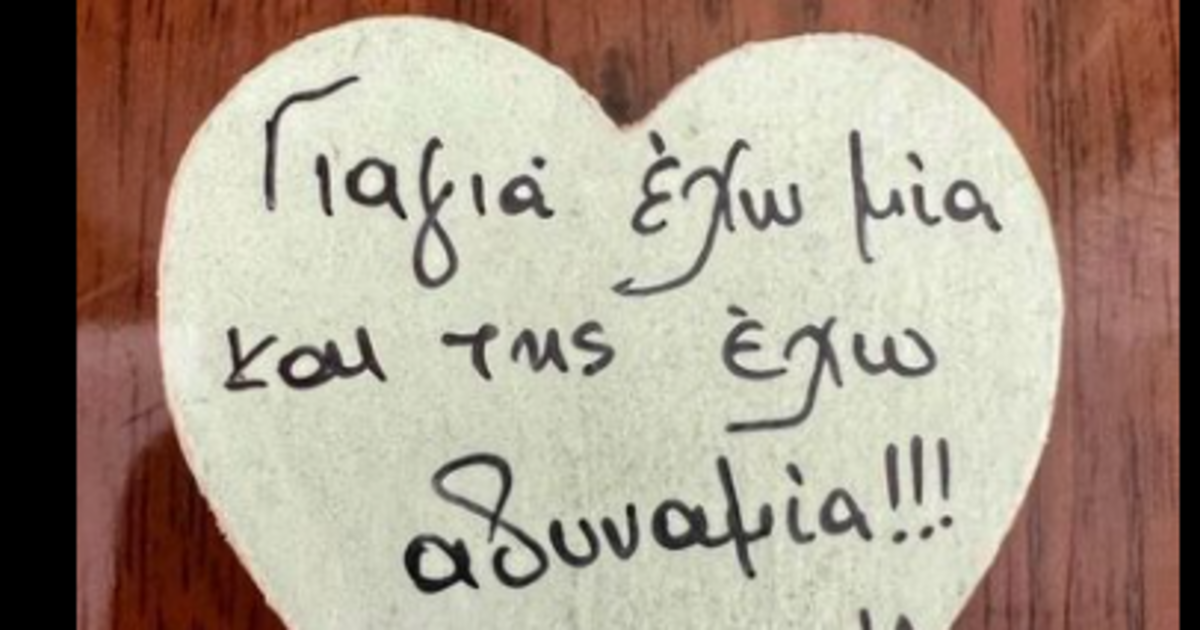 Γιαγιά έχω μία
και της έχω
αδυναμία!!!